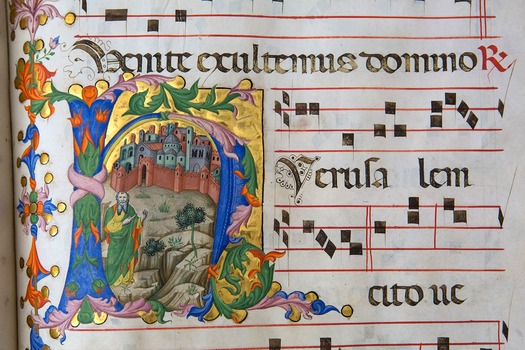 Venite exultemus domino ℟
HIerusa lem
cito ue